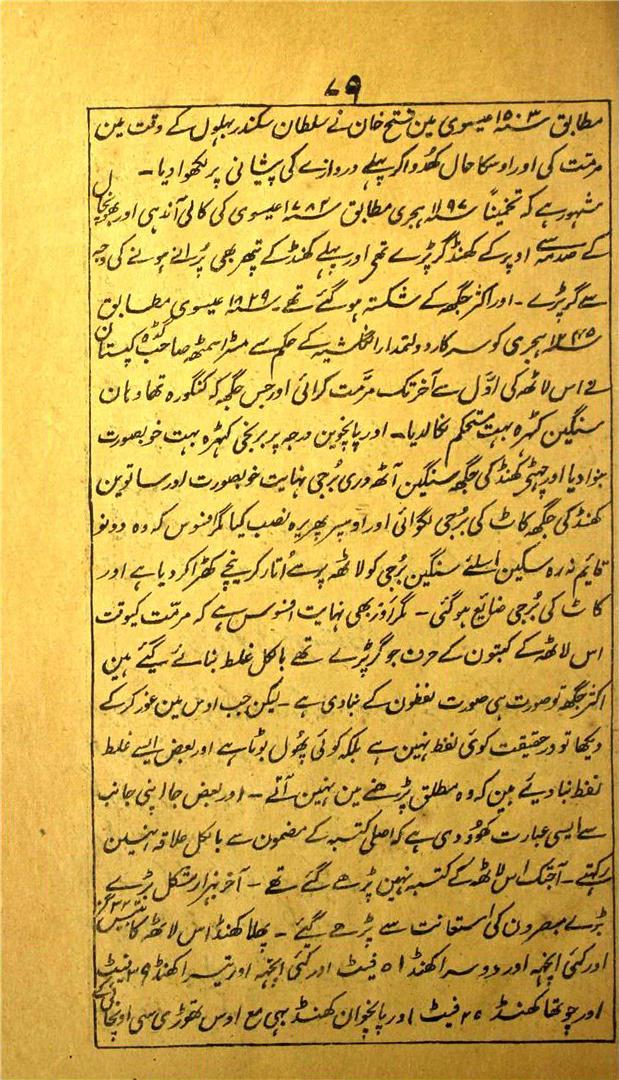 ۷۹
مطابق سنہ ۱۵۰۳ عیسوی مین فتح خان نے سلطان سکندر بہلول کے وقت مین
مرمت کی اور اوسکا حال کھدوا کر پہلے دروازے کی پیشانی پر لکھوا دیا ۔
مشہور ہے کہ تخمیناً سنہ ۱۱۹۷ ہجری مطابق سنہ ۱۷۸۲ عیسوی کی کالی آندہی اور بھونچال
کے صدمہ سے اوپر کے کھنڈ گر پڑے تھی اور پہلے کھنڈ کے پتھر بھی پُرانے ہونے کی وجہ
سے گر پڑے ۔ اور اکثر جگھ کے شکستہ ہو گئے تھے ۔ سنہ ۱۸۲۹ عیسوی مطابق
سنہ ۱۲۴۵ ہجری کو سرکار دولتمدار انگلشیہ کے حکم سے مسٹر اسمٹھ صاحب گڈہ کپتان
نے اس لاٹھ کی اوّل سے آخر تک مرّمت کرائی اور جس جگھ کہ کنگورہ تھا وہان
سنگین کٹہرہ بہت مستحکم لگا دیا ۔ اور پانچوین درجہ پر برنجی کٹہرہ بہت خوبصورت
بنوا دیا اور چھٹی کھنڈ کی جگھ سنگین آٹھ دری بُرجی نہایت خوبصورت اور ساتوین
کھنڈ کی جگھ کاٹ کی بُرجی لگوائی اور اوسپر پھریرہ نصب کیا مگر افسوس کہ وہ دونو
قایم نہ رہ سکین اسلئے سنگین بُرجی کو لاٹھ پر سے اُتار کر نیچے کھڑا کر دیا ہے اور
کاٹ کی بُرجی ضایع ہو گئی ۔ مگر اور بھی نہایت افسوس ہے کہ مرمّت کیوقت
اس لاٹھ کے کتبون کے حرف جو گر پڑے تھے بالکل غلط بنائے گیئے ہین
اکثر جگھ تو صورت ہی صورت لفظون کے بنا دی ہے ۔ لیکن جب اوس مین غور کر کے
دیکھا تو درحقیقت کوئی لفظ نہین ہے بلکہ کوئی پھول بوٹا ہے اور بعض ایسے غلط
لفظ بنا دیئے ہین کہ وہ مطلق پڑھنے مین نہین آتے ۔ اور بعض جا اپنی جانب
سے ایسی عبارت کھود دی ہے کہ اصلی کتبہ کے مضمون سے بالکل علاقہ نہین
رکہتے ۔ آجتک اس لاٹھ کے کتبہ نہین پڑھے گئے تھے ۔ آخر ہزار مشکل بڑے
بڑے مبصرون کی استعانت سے پڑھے گیئے ۔ پہلا کھنڈ اس لاٹھ کا
اور کئی اپنچہ اور دوسرا کھنڈ ۵۱ فیٹ اور کئی اپنچہ اور تیسرا کھنڈ ۳۹ فیٹ
اور چوتھا کھنڈ ۲۵ فیٹ اور پانچوان کھنڈ بہی مع اوس تھوڑی سی اونچائی کے